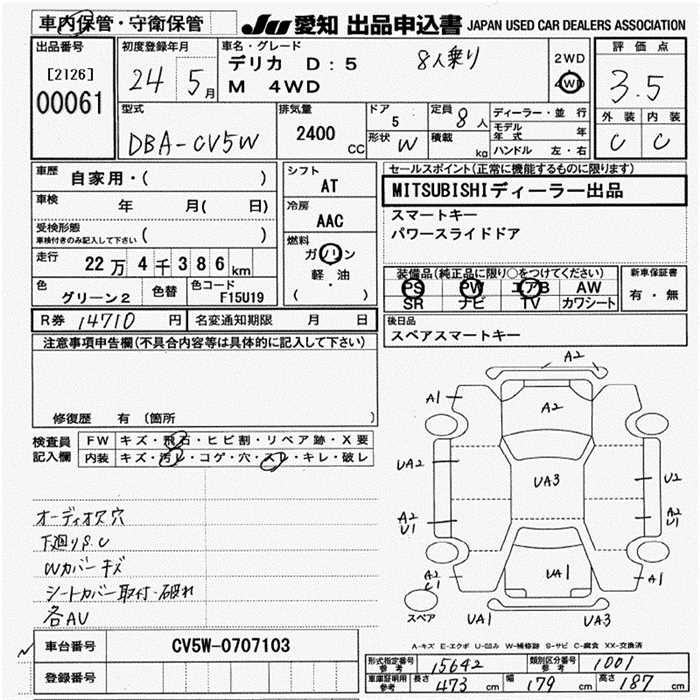 車内保管・守衛保管
JU 愛知 出品申込書 JAPAN USED CAR DEALERS ASSOCIATION
出品番号
[2126]
00061
初度登録年月
24 5月
車名・グレード
デリカ D:5 8人乗り
M 4WD
2WD
4WD
評価点
3.5
外装 内装
C C
型式
DBA-CV5W
排気量
2400 CC
ドア
5
形状 W
定員 8人
積載 kg
ディーラー・並行
モデル年式 年
ハンドル 左・右
車歴
自家用・( )
車検
年 月( 日)
受検形態
車検付きのみ記入して下さい ( )
走行
22万4千386km
色
グリーン2
色替
色コード
F15U19
シフト
AT
冷房
AAC
燃料
ガソリン
軽・油
( )
セールスポイント(正常に機能するものに限ります)
MITSUBISHIディーラー出品
スマートキー
パワースライドドア
装備品(純正品に限り○をつけてください)
PS PW エアB AW
SR ナビ TV カワシート
新車保証書
有・無
R券 14710 円
名変通知期限 月 日
後日品
スペアスマートキー
注意事項申告欄(不具合内容等は具体的に記入して下さい)
修復歴 有 (箇所 )
検査員記入欄
FW キズ・飛石・ヒビ割・リペア跡・X要
内装 キズ・汚レ・コゲ・穴・スレ・キレ・破レ
オーディオス穴
下廻りS.U
Wカバーキズ
シートカバー取付・破れ
各AU
A2
A1
A2
UA2
UA3
U2
A2
U1
A2
U1
A2
U1
UA1
A1
スペア
UA1
UA3
A-キズ E-エクボ U-凹み W-補修跡 S-サビ C-腐食 XX-交換済
車台番号
CV5W-0707103
登録番号
形式指定番号
参考
15642
類別区分番号
参考
1001
車庫証明用
参考
長さ 473 cm
幅 179 cm
高さ 187 cm